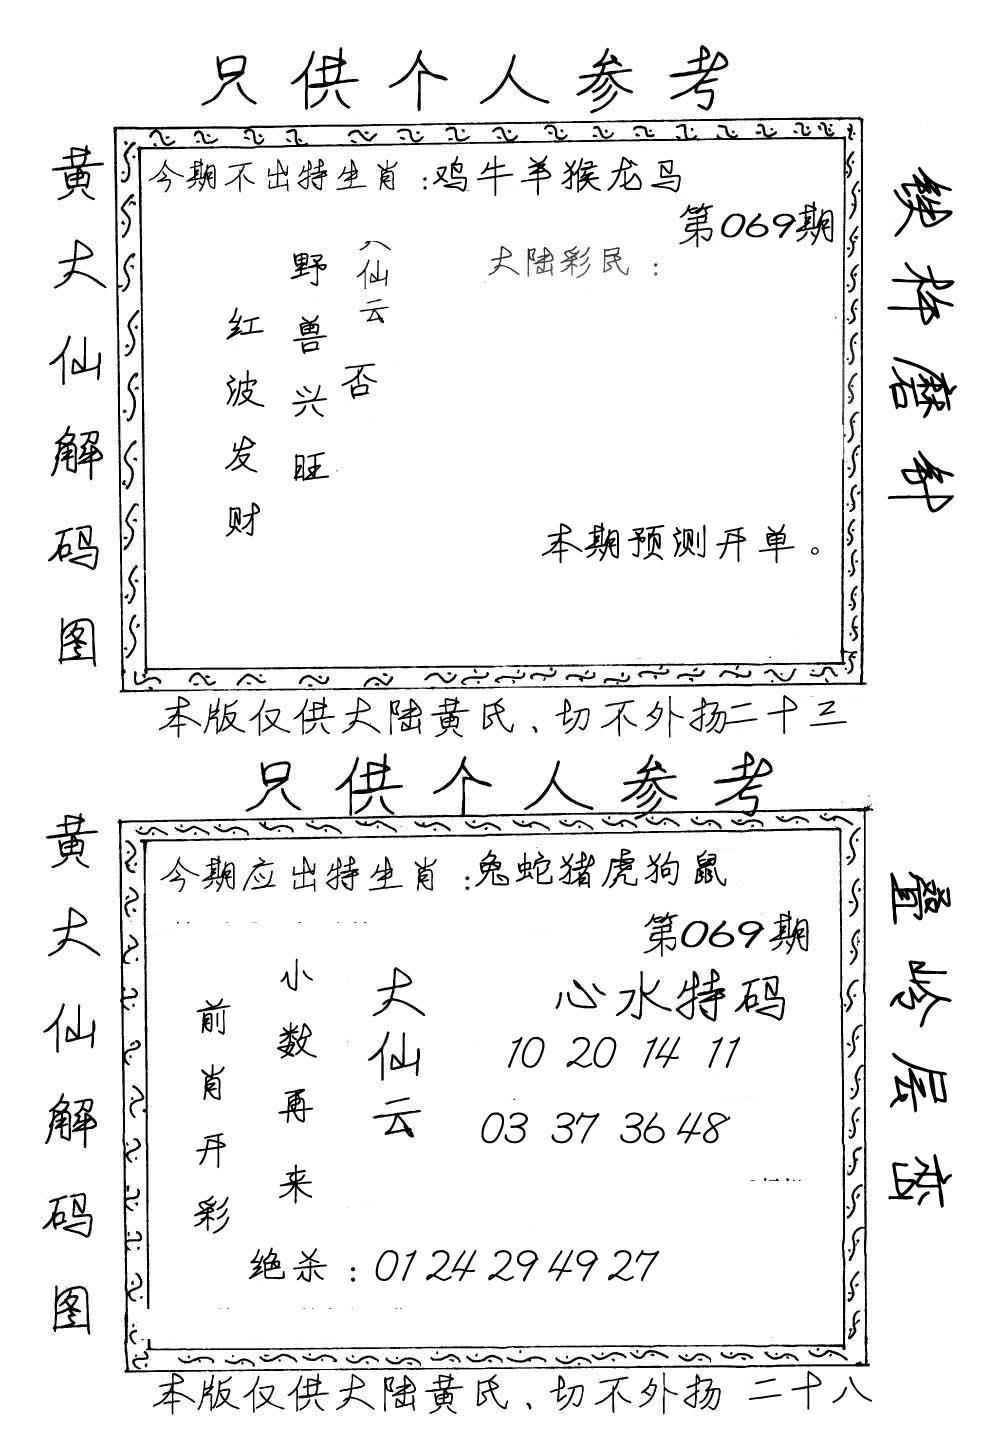 只供个人参考
黄大仙解码图
今期不出特生肖：鸡牛羊猴龙马
第069期
大陆彩民：
大仙云
否
野兽兴旺
红波发财
本期预测开单。
铁杵磨针
本版仅供大陆黄氏、切不外扬二十三
只供个人参考
黄大仙解码图
今期应出特生肖：兔蛇猪虎狗鼠
第069期
心水特码
10 20 14 11
03 37 36 48
大仙云
小数再来
前肖开彩
绝杀：01 24 29 49 27
叠岭层峦
本版仅供大陆黄氏、切不外扬 二十八